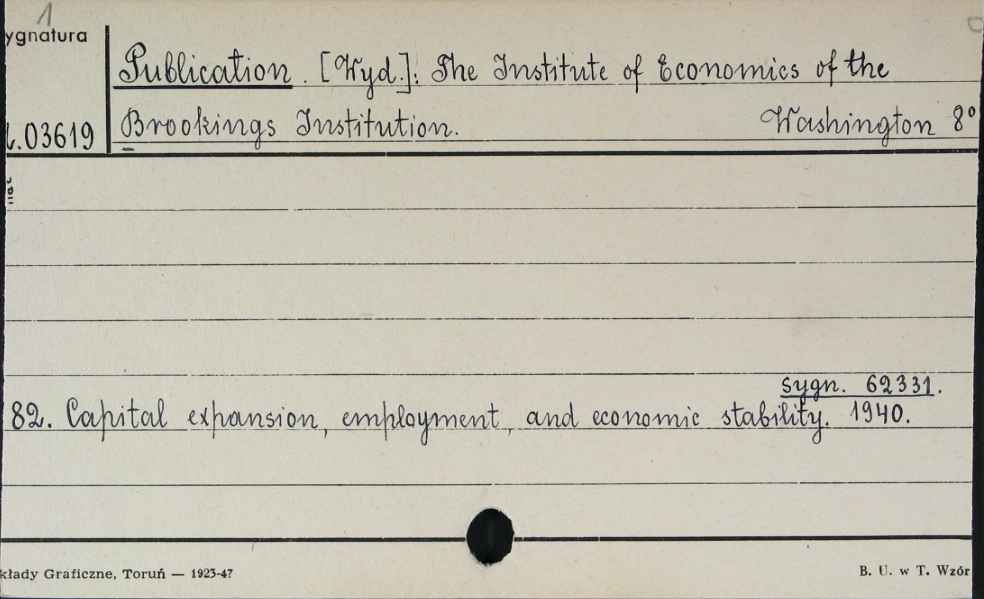 1
ygnatura
Publication. [Wyd.]: The Institute of Economics of the
.03619
Brookings Institution. Washington 8°
sygn. 62331.
82. Capital expansion, employment, and economic stability. 1940.
kłady Graficzne, Toruń — 1923-47
B. U. w T. Wzór